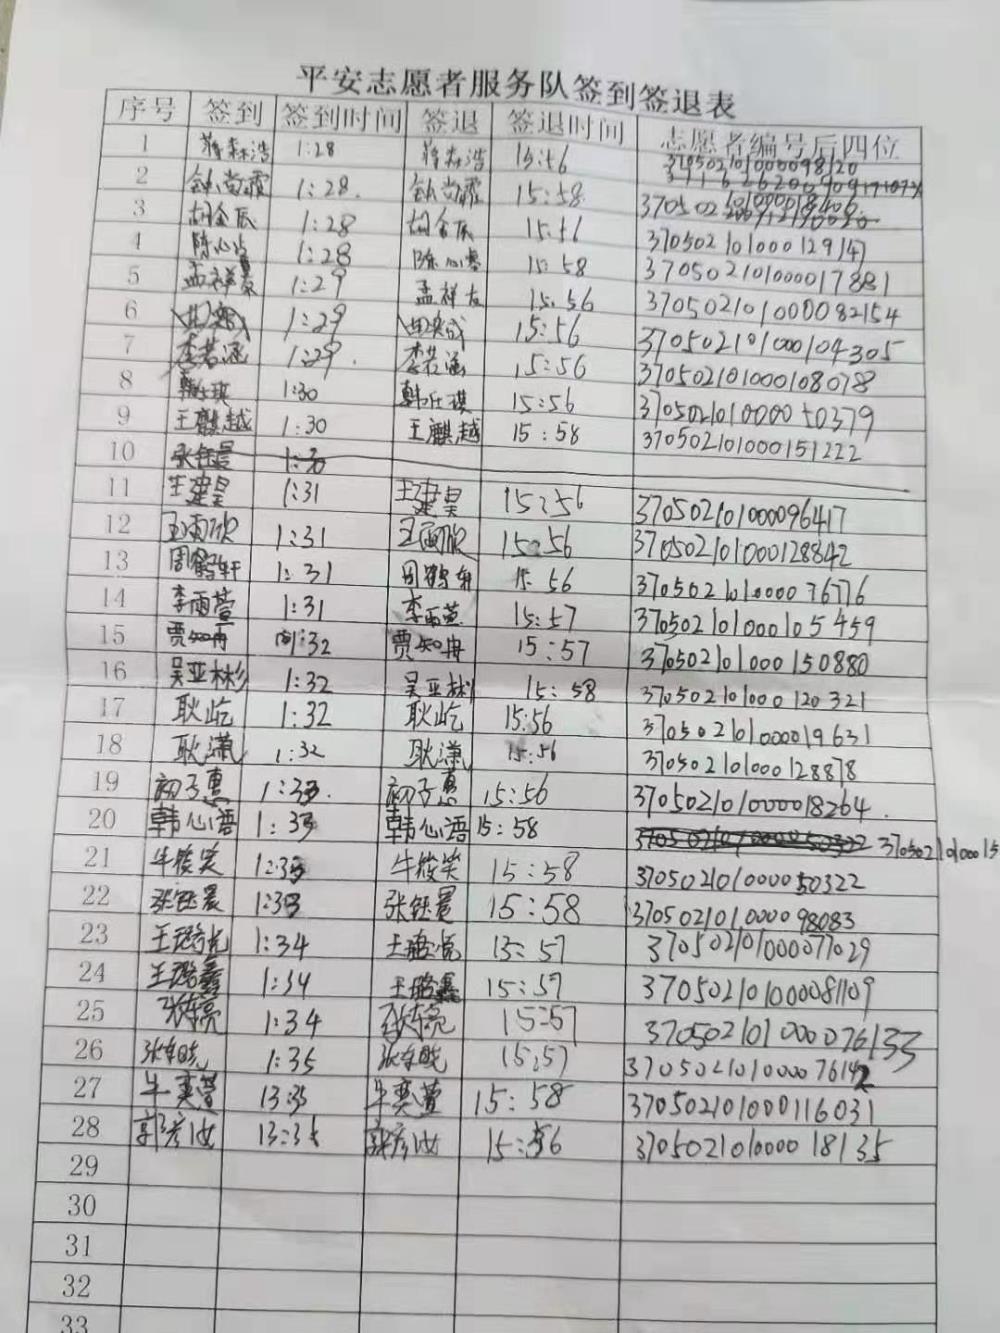 平安志愿者服务队签到签退表
序号 签到 签到时间 签退 签退时间 志愿者编号后四位
1 蒋森浩 1:28 蒋森浩 15:56 370502101000098120
2 1:28. 15:58
3 胡金辰 1:28 胡金辰 15:56 370502101000129147
4 1:28 15:58 370502101000017881
5 1:29 15:56 370502101000082154
6 1:29 15:56 370502101000104305
7 李若涵 1:29. 李若涵 15:56 370502101000108078
8 韩任琪 1:30 韩任琪 15:56 370502101000050379
9 王麒越 1:30 王麒越 15:58 370502101000151222
10 张钰晨 1:30
11 王建昊 1:31 王建昊 15:56 370502101000096417
12 王雨欣 1:31 王雨欣 15:56 370502101000128842
13 周鹤轩 1:31 周鹤轩 15:56 370502101000076776
14 李雨萱 1:31 李雨萱 15:57 370502101000105459
15 贾知冉 1:32 贾知冉 15:57 370502101000150880
16 吴亚彬 1:32 吴亚彬 15:58 370502101000120321
17 耿屹 1:32 耿屹 15:56 370502101000019631
18 耿潇 1:32 耿潇 15:56 370502101000128878
19 初子惠 1:33. 初子惠 15:56 370502101000018264
20 韩心语 1:33 韩心语 15:58 370502101000050322 37050210100015
21 牛筱笑 1:33 牛筱笑 15:58 370502101000050322
22 张钰晨 1:33 张钰晨 15:58 370502101000098083
23 1:34 15:57 370502101000077029
24 王璐鑫 1:34 王璐鑫 15:57 370502101000081109
25 1:34 15:57 370502101000076133
26 1:35 15:57 370502101000076142
27 牛奕萱 13:35 牛奕萱 15:58 370502101000116031
28 郭彦汝 13:35 郭彦汝 15:56 370502101000018135
29
30
31
32
33